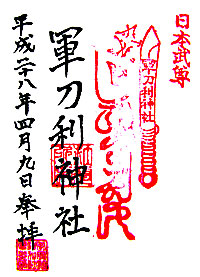 日本武尊
軍刀利神社
軍刀利神社
平成二十八年四月九日奉拝